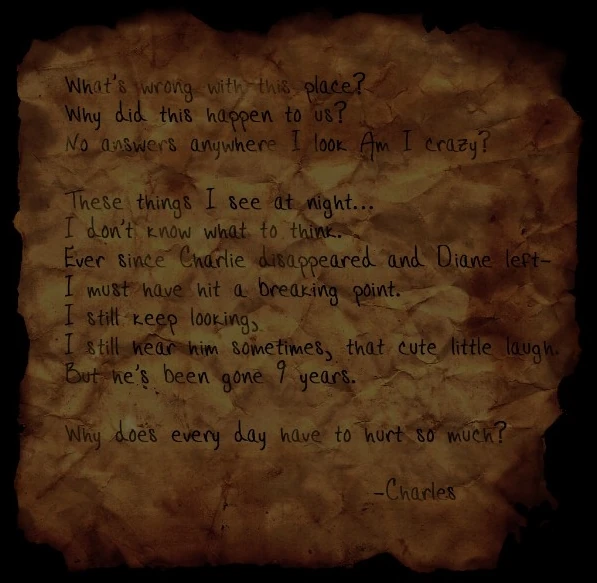 What's wrong with this place?
Why did this happen to us?
No answers anywhere I look Am I crazy?
These things I see at night...
I don't know what to think.
Ever since Charlie disappeared and Diane left-
I must have hit a breaking point.
I still keep looking,
I still hear him sometimes, that cute little laugh.
But he's been gone 9 years.
Why does every day have to hurt so much?
-Charles